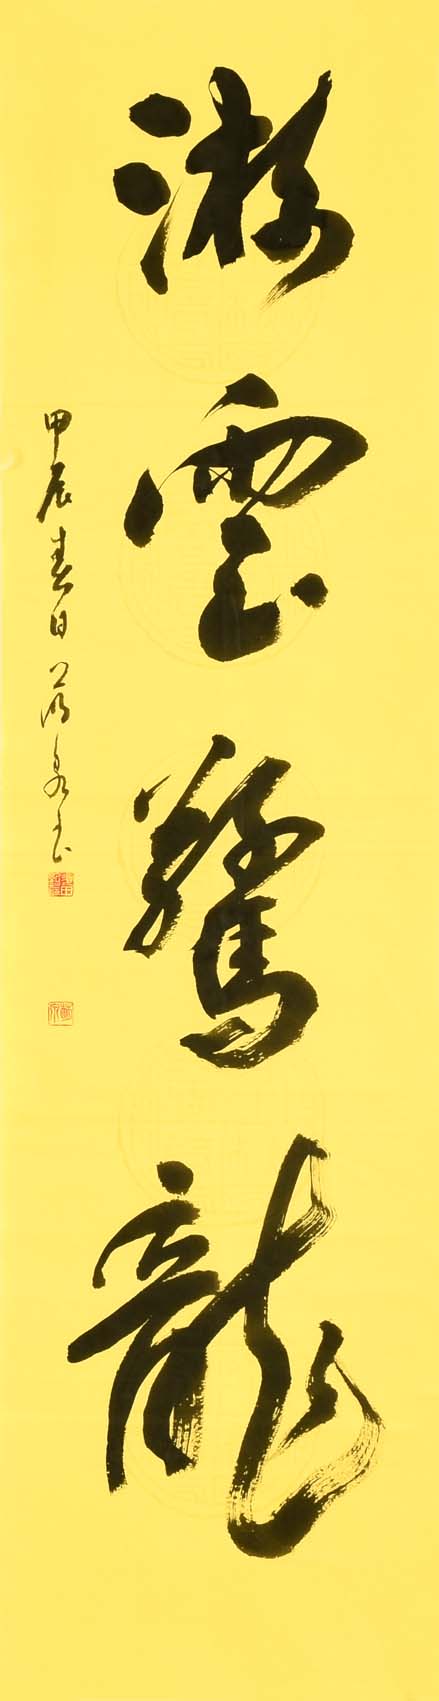 游雲驚龍
甲辰春日